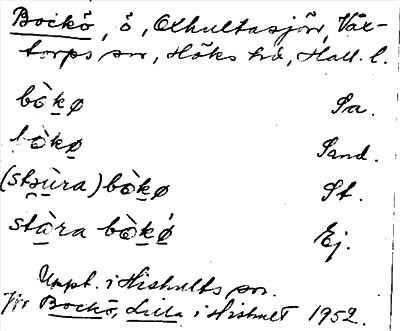 Bockö, ö, Oxhultasjön, Väx-
torps sn, Höks hd, Hall. l.
bò̀kø Sa.
bòkø Sand.
(stɷ̀ra) bòkø St.
stàra bòkǿ Ej.
Uppt. i Hishults sn.
Jfr Bockö, Lilla i Hishult 1952.